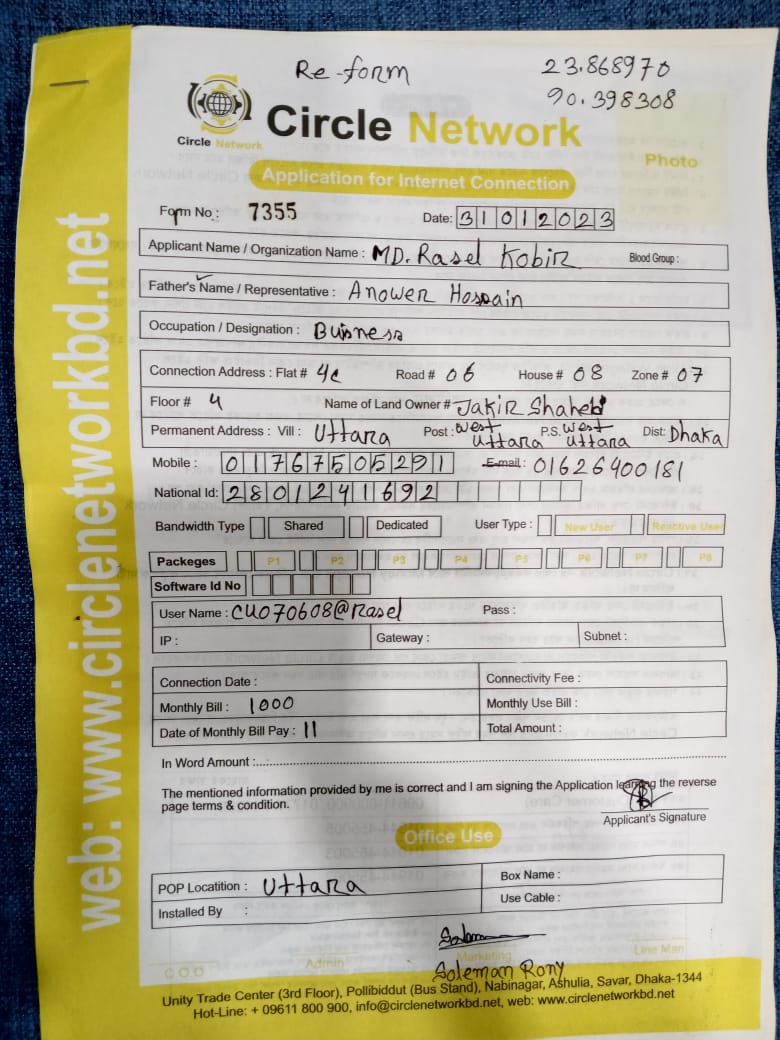 Re-form
23.868970
90.398308
Circle Network
Circle Network
Photo
Application for Internet Connection
Form No.: 7355
Date: 31012023
Applicant Name / Organization Name : MD. Rasel Kobir Blood Group :
Father's Name / Representative : Anower Hossain
Occupation / Designation : Buisness
Connection Address : Flat # 4c Road # 06 House # 08 Zone # 07
Floor # 4 Name of Land Owner # Jakir Shaheb
Permanent Address : Vill : Uttara Post : West Uttara P.S. West Uttara Dist: Dhaka
Mobile : 01767505291 E-mail : 01626400181
National Id: 2801241692
Bandwidth Type Shared Dedicated User Type : New User Reactive User
Packeges P1 P2 P3 P4 P5 P6 P7 P8
Software Id No
User Name : CU070608@Rasel Pass :
IP : Gateway : Subnet :
Connection Date : Connectivity Fee :
Monthly Bill : 1000 Monthly Use Bill :
Date of Monthly Bill Pay : 11 Total Amount :
In Word Amount :
The mentioned information provided by me is correct and I am signing the Application learning the reverse
page terms & condition.
Applicant's Signature
Office Use
POP Locatition : Uttara Box Name :
Installed By : Use Cable :
C O O Admin Marketing Line Man
Soleman Rony
Unity Trade Center (3rd Floor), Pollibiddut (Bus Stand), Nabinagar, Ashulia, Savar, Dhaka-1344
Hot-Line: + 09611 800 900, info@circlenetworkbd.net, web: www.circlenetworkbd.net
web: www.circlenetworkbd.net